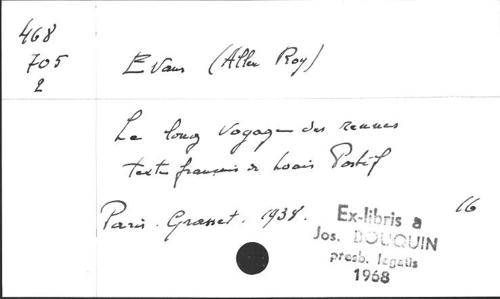 468
705
2
Evans (Allen Roy)
Le long voyage des rennes
texte français de Louis Postif
Paris. Grasset. 1938.
16
Ex-libris a
Jos. BOUQUIN
presb. legatis
1968